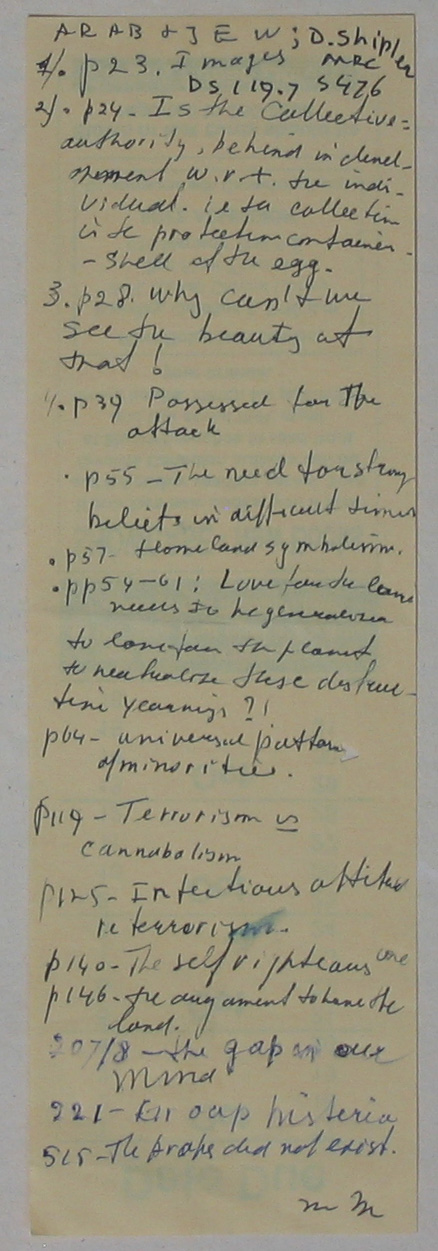 ARAB & JEW; D. Shipler
1/. p23. Images MRC
DS 119.7 S476
2/. p24 - Is the Collective=
authority, behind in devel-
opment w.r.t. the indi-
vidual. ie the collective
is the protection container -
- shell of the egg.
3. p28. Why can't we
see the beauty of
that!
p39 Possessed for the
attack
. p55 - The need for strong
beliefs in difficult times
. p57 - Homeland symbolism.
. pp 54-61: Love for the land
needs to be generalized
to love for the planet
to neutralize these destruc-
tive yearnings ?!
p64 - universal pattern
of minorities.
p119 - Terrorism is
cannabolism
p125 - Infectious attitude
re terrorism.
p140 - The self righteous one
p146 - the augument to have the
land.
207/8 - the gap in our
mind
221 - histeria
515 - The props did not exist.